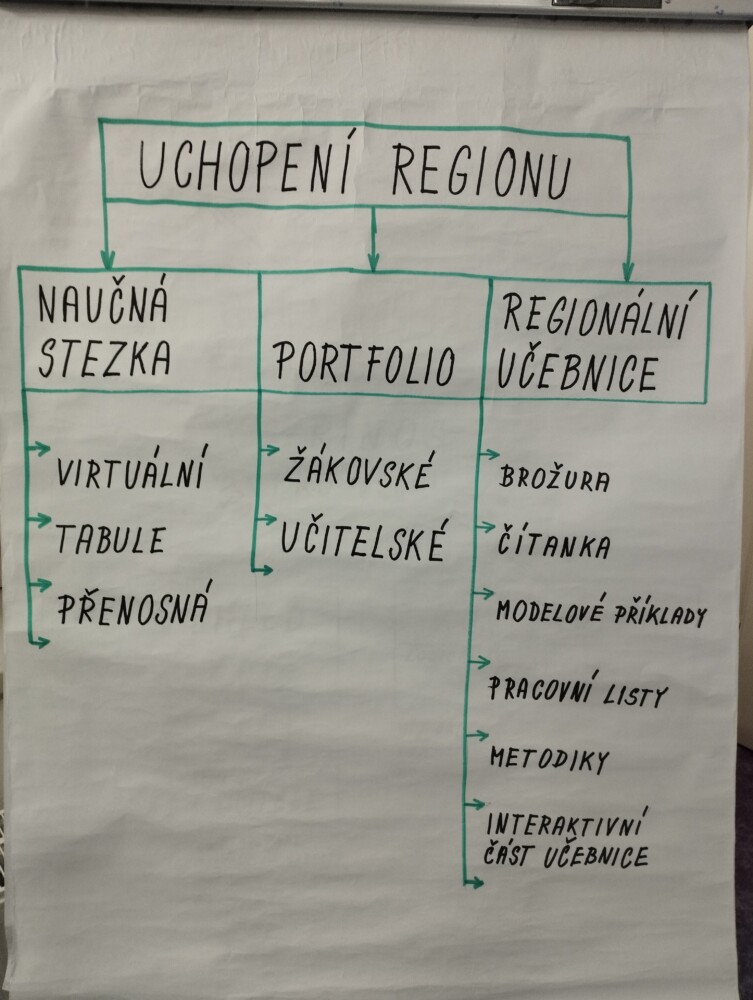 UCHOPENÍ REGIONU
NAUČNÁ
STEZKA
VIRTUÁLNÍ
TABULE
PŘENOSNÁ
PORTFOLIO
ŽÁKOVSKÉ
UČITELSKÉ
REGIONÁLNÍ
UČEBNICE
BROŽURA
ČÍTANKA
MODELOVÉ PŘÍKLADY
PRACOVNÍ LISTY
METODIKY
INTERAKTIVNÍ
ČÁST UČEBNICE